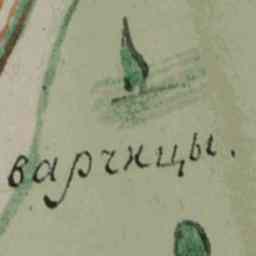 варчицы.